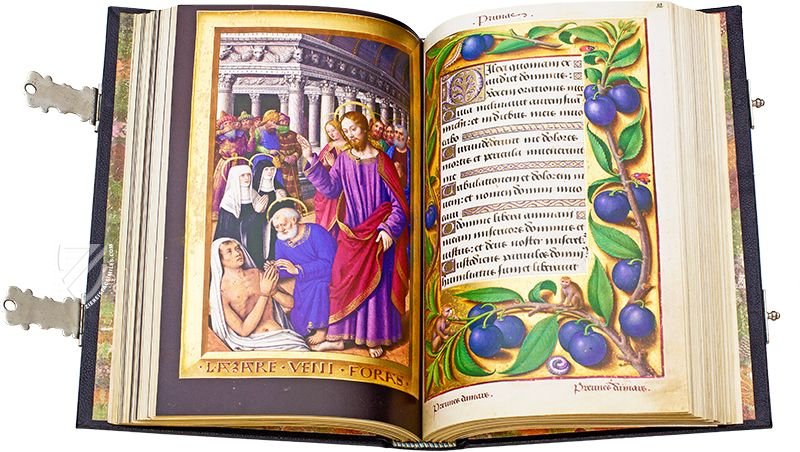 LAZARE · VENI · FORAS
Prunae
Dilexi quoniam ex
audiet dominus:
vocem orationis mee
Quia inclinavit aurem suam
michi: et in diebus meis invo
cabo
Circundederunt me dolores
mortis et pericula
me
Tribulationem et dolorem in
veni: et nomen domini invo
cavi
O domine libera animam
meam misericors dominus et
iustus: et deus noster miseret
Custodiens parvulos dominus
humiliatus sum et liberavit
Prunes dumars.
Prunes dumars.
ZIERERFACSIMILES.COM